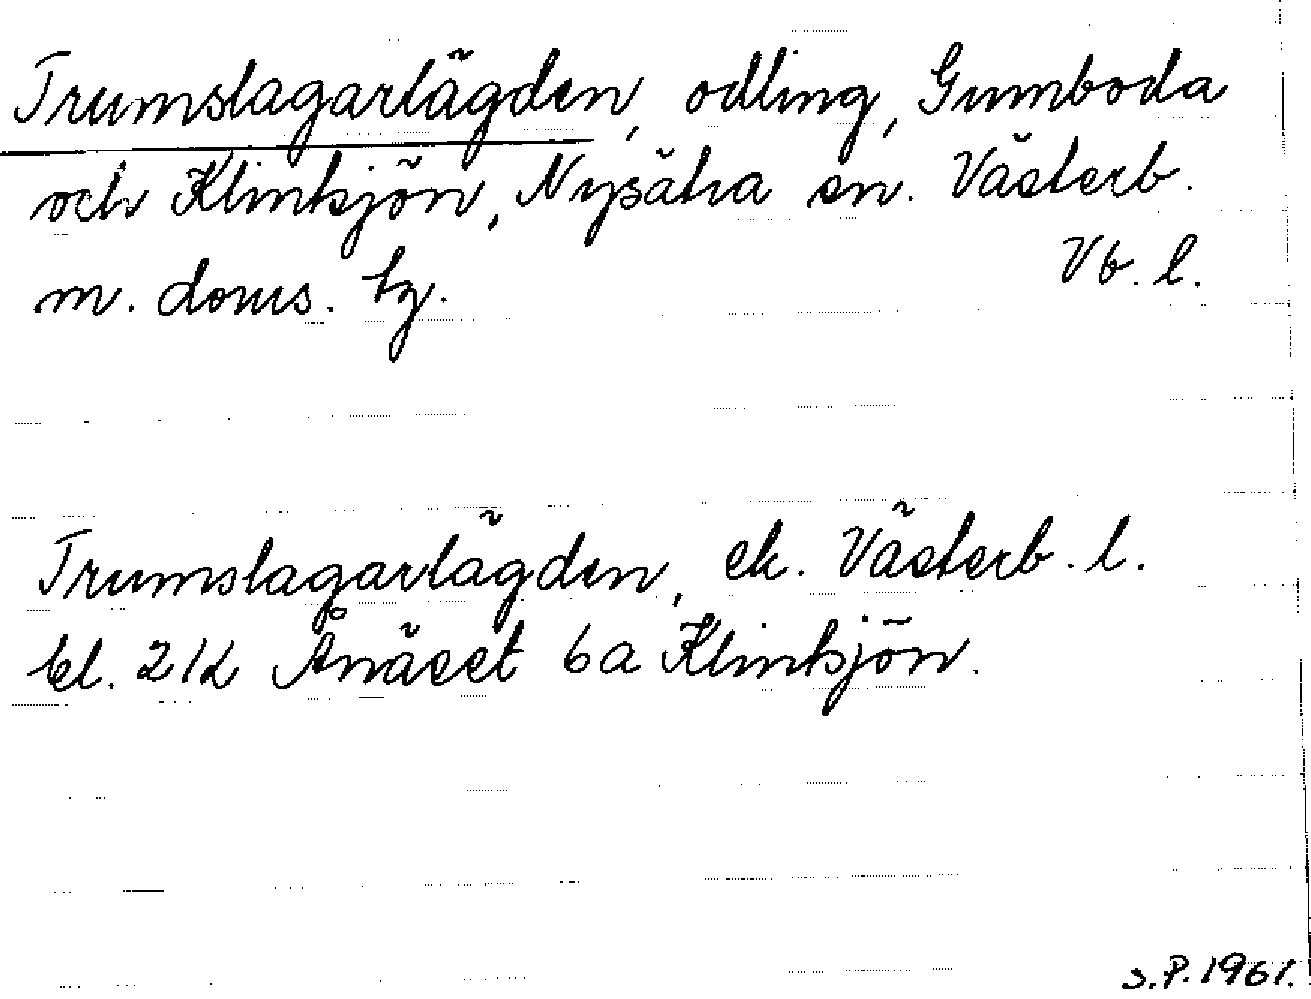 Trumslagarlägden, odling, Gumboda
och Klinksjön, Nysätra sn. Västerb.
m. doms. hg. Vb. l.
Trumslagarlägden, ek. Västerb. l.
bl. 21d Ånäset 6a Klinksjön.
S.P. 1961.